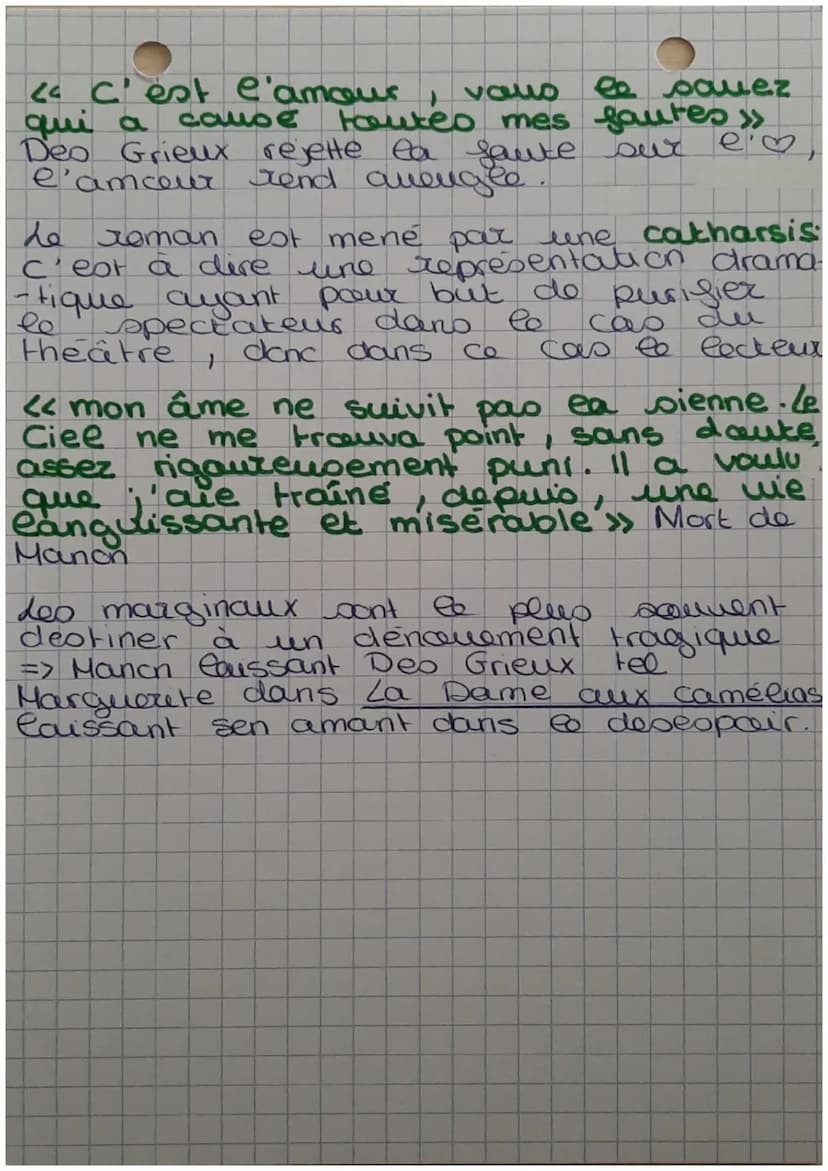 << C'est l'amour, vous le savez
qui a causé toutes mes fautes >>
Des Grieux rejette la faute sur l'♡,
l'amour rend aveugle.
Le roman est mené par une catharsis.
C'est à dire une représentation drama-
-tique ayant pour but de purifier
le spectateur dans le cas du
théâtre, donc dans ce cas le lecteur
<< mon âme ne suivit pas la sienne. Le
Ciel ne me trouva point, sans doute,
assez rigoureusement puni. Il a voulu
que j'aie traîné, depuis, une vie
languissante et misérable >> Mort de
Manon
Les marginaux sont le plus souvent
destiner à un dénouement tragique
=> Manon laissant Des Grieux tel
Marguerite dans La Dame aux camélias
laissant son amant dans le desespoir.